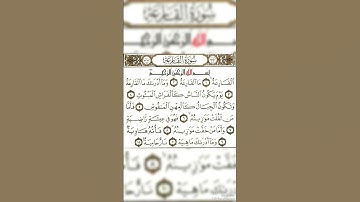 سُورَةُ القَارِعَةِ
بِسْمِ اللَّهِ الرَّحْمَٰنِ الرَّحِيمِ
سُورَةُ القَارِعَةِ
بِسْمِ اللَّهِ الرَّحْمَٰنِ الرَّحِيمِ
ٱلْقَارِعَةُ ۝ مَا ٱلْقَارِعَةُ ۝ وَمَآ أَدْرَىٰكَ مَا ٱلْقَارِعَةُ
۝ يَوْمَ يَكُونُ ٱلنَّاسُ كَٱلْفَرَاشِ ٱلْمَبْثُوثِ ۝
وَتَكُونُ ٱلْجِبَالُ كَٱلْعِهْنِ ٱلْمَنفُوشِ ۝ فَأَمَّا
مَن ثَقُلَتْ مَوَٰزِينُهُۥ ۝ فَهُوَ فِى عِيشَةٍ رَّاضِيَةٍ
۝ وَأَمَّا مَنْ خَفَّتْ مَوَٰزِينُهُۥ ۝ فَأُمُّهُۥ هَاوِيَةٌ
۝ وَمَآ أَدْرَىٰكَ مَا هِيَهْ ۝ نَارٌ حَامِيَةٌۢ ۝